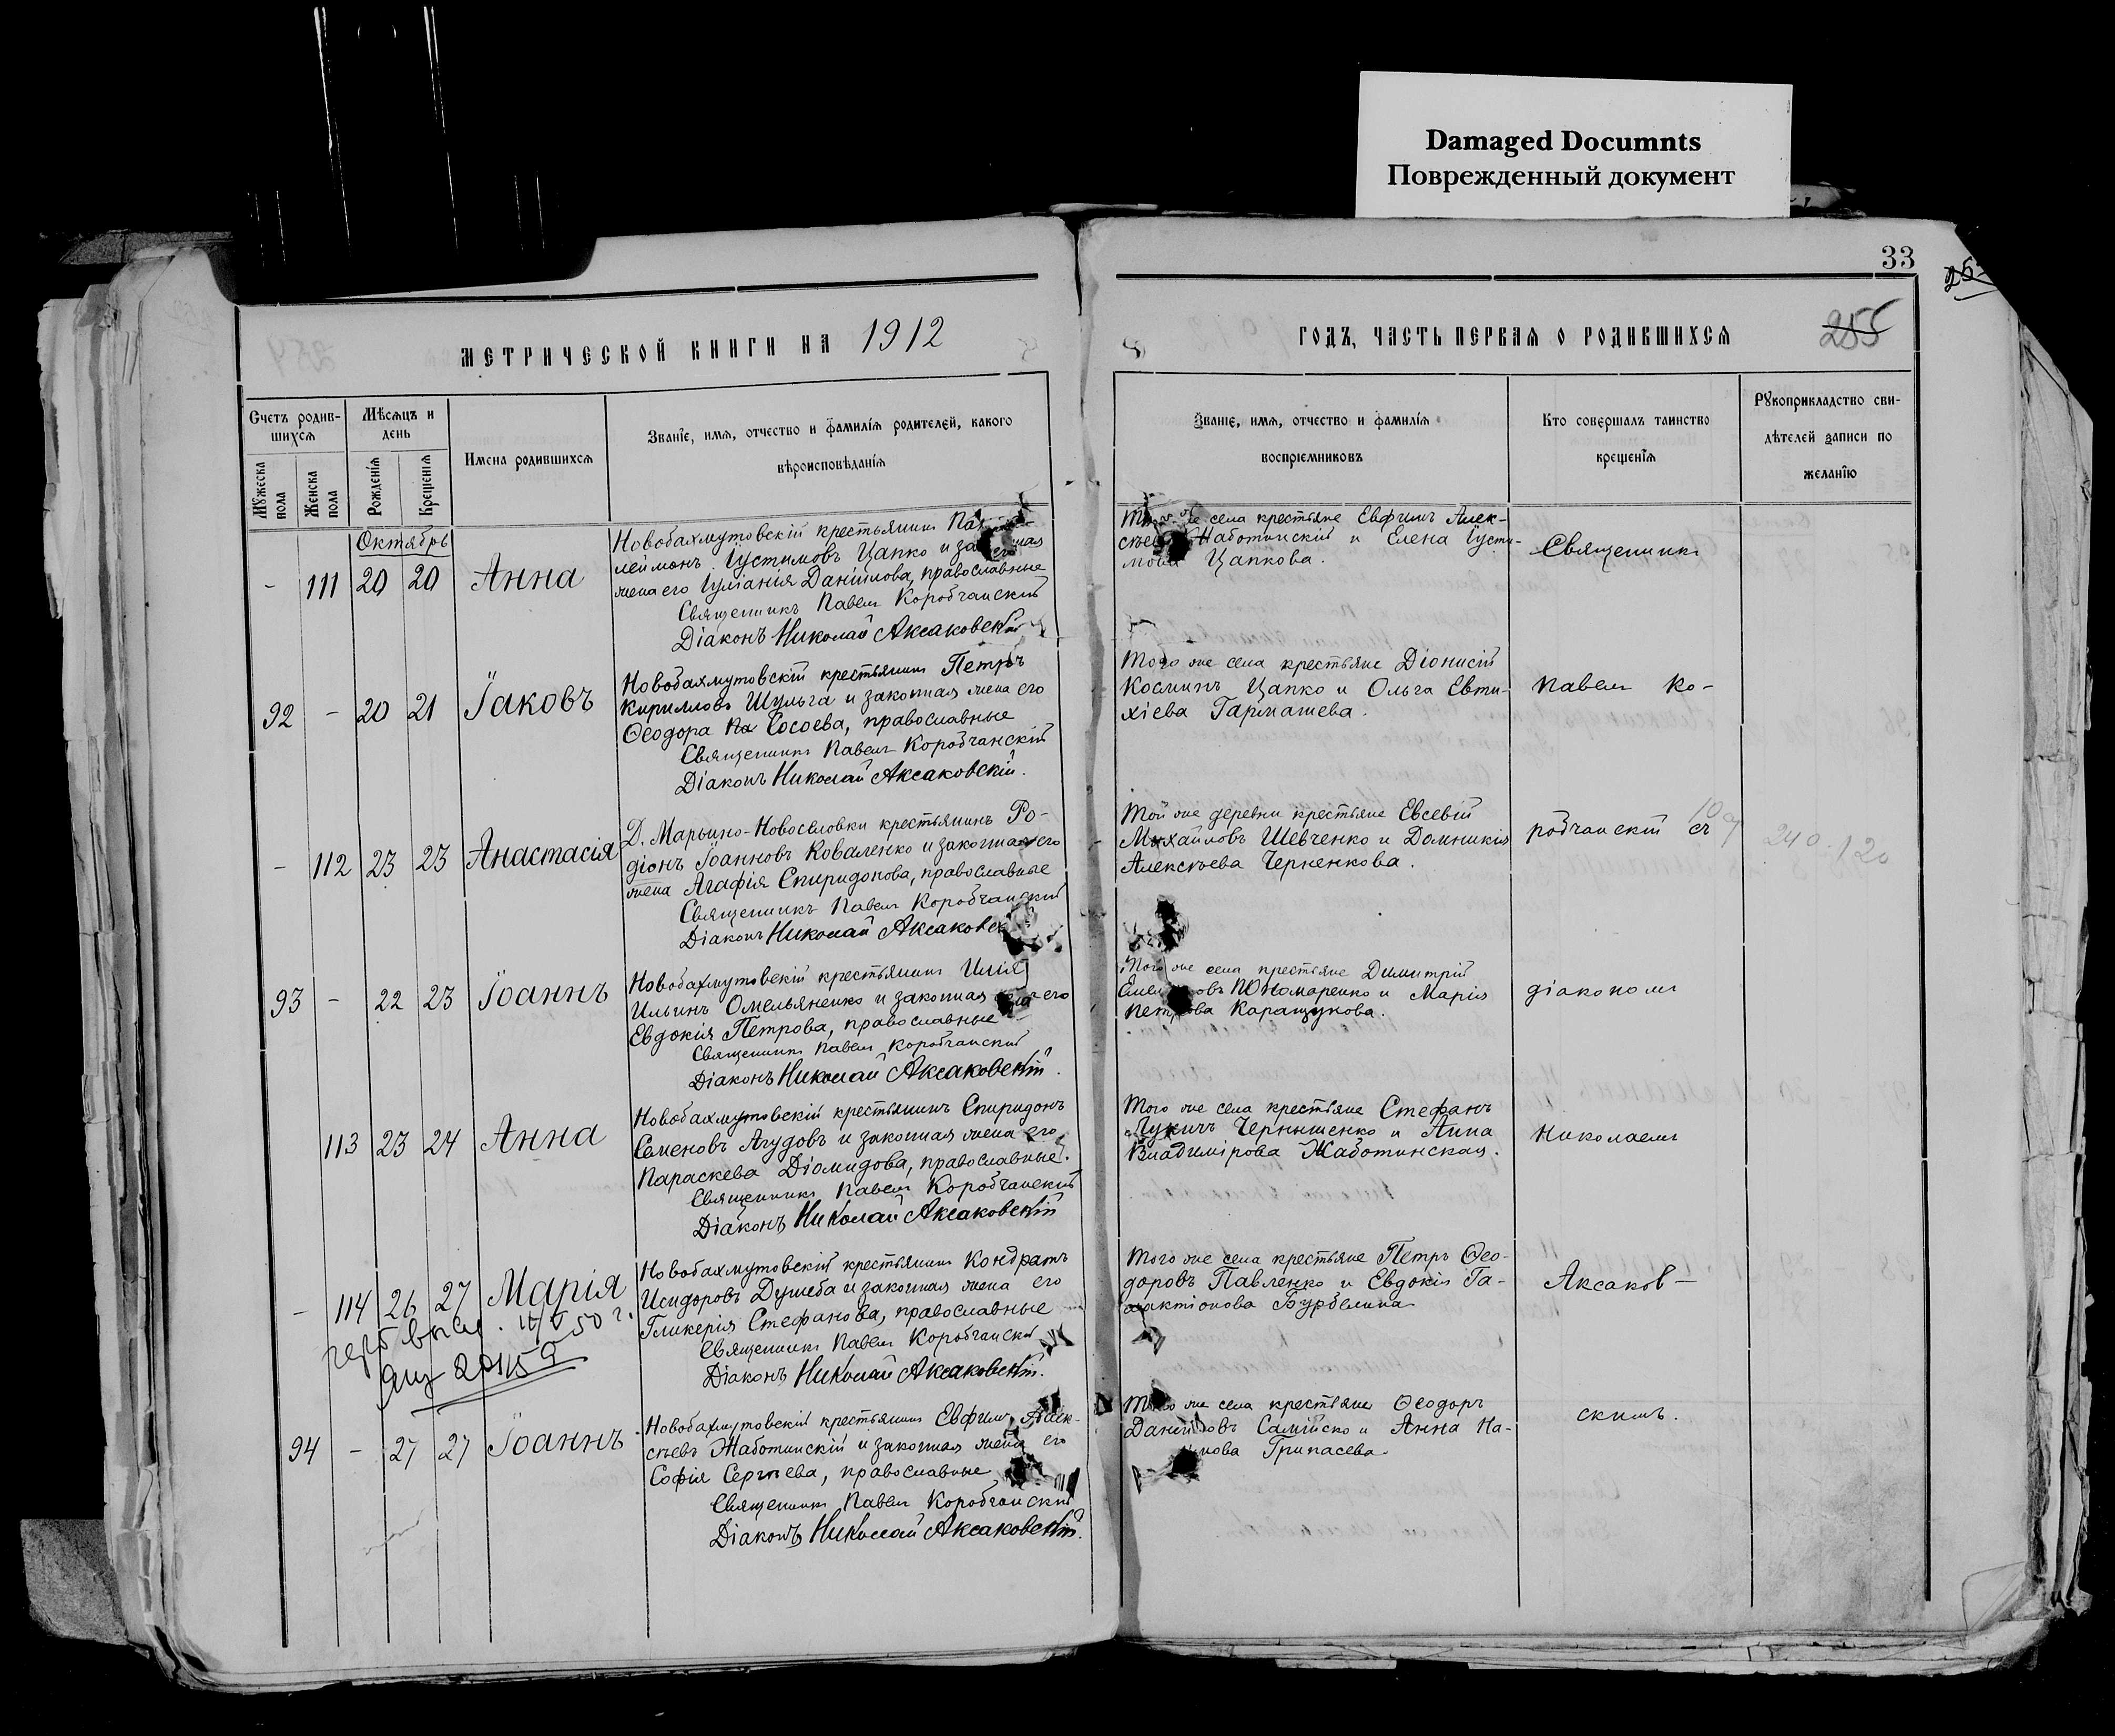 Damaged Documnts
Поврежденный документ
33
255
МЕТРИЧЕСКОЙ КНИГИ НА 1912
ГОДЪ, ЧАСТЬ ПЕРВАЯ О РОДИВШИХСЯ
Счетъ родив-
шихся
Мужеска пола
Женска пола
Мѣсяцъ и
день
Рожденія
Крещенія
Имена родившихся
Званіе, имя, отчество и фамилія родителей, какого
вѣроисповѣданія
Званіе, имя, отчество и фамилія
воспріемниковъ
Кто совершалъ таинство
крещенія
Рукоприкладство сви-
дѣтелей записи по
желанію
Октябрь
- 111 20 20 Анна
Новобахмутовскій крестьянинъ
леймонъ Іустимовъ Цапко и
жена его Іуліанія Даніилова, православные
Священникъ Павелъ Коробчанскій
Діаконъ Николай Аксаковскій
села крестьяне Евфимъ Алек-
Жаботинскій и Елена Іусти-
мова Цапкова.
Священникъ
92 - 20 21 Іаковъ
Новобахмутовскій крестьянинъ Петръ
Кирилловъ Шульга и законная жена его
Ѳеодора Сосоева, православные
Священникъ Павелъ Коробчанскій
Діаконъ Николай Аксаковскій.
Того же села крестьяне Діонисій
Косминъ Цапко и Ольга Евти-
хіева Гармашева.
Павелъ Ко-
- 112 23 23 Анастасія
Д. Марьино-Новоселовки крестьянинъ Ро-
діонъ Іоанновъ Коваленко и законная его
жена Агафія Спиридонова, православные
Священникъ Павелъ Коробчанскій
Діаконъ Николай Аксаковск
Той же деревни крестьяне Евсевій
Михайловъ Шевченко и Домникія
Алексѣева Черненкова.
робчанскій съ
240 120
93 - 22 23 Іоаннъ
Новобахмутовскій крестьянинъ Илія
Ильинъ Омельяненко и законная его
Евдокія Петрова, православные
Священникъ Павелъ Коробчанскій
Діаконъ Николай Аксаковскій.
Того же села крестьяне Димитрій
Пономаренко и Марія
Петрова Каращукова.
діакономъ
113 23 24 Анна
Новобахмутовскій крестьянинъ Спиридонъ
Семеновъ Агудовъ и законная жена его
Параскева Діомидова, православные.
Священникъ Павелъ Коробчанскій
Діаконъ Николай Аксаковскій
Того же села крестьяне Стефанъ
Лукичъ Чернышенко и Анна
Владимірова Жаботинская.
Николаемъ
- 114 26 27 Марія
50 г.
Новобахмутовскій крестьянинъ Кондратъ
Исидоровъ Душеба и законная жена его
Гликерія Стефанова, православные
Священникъ Павелъ Коробчанскій
Діаконъ Николай Аксаковскій.
Того же села крестьяне Петръ Ѳео-
доровъ Павленко и Евдокія Га-
лактіонова Бурбелина
Аксаков-
94 - 27 27 Іоаннъ
Новобахмутовскій крестьянинъ Евфимъ Алек-
сѣевъ Жаботинскій и законная жена его
Софія Сергѣева, православные
Священникъ Павелъ Коробчанскій
Діаконъ Николай Аксаковскій.
Того же села крестьяне Ѳеодоръ
Даніиловъ Самійско и Анна На-
Грипасева.
скимъ.